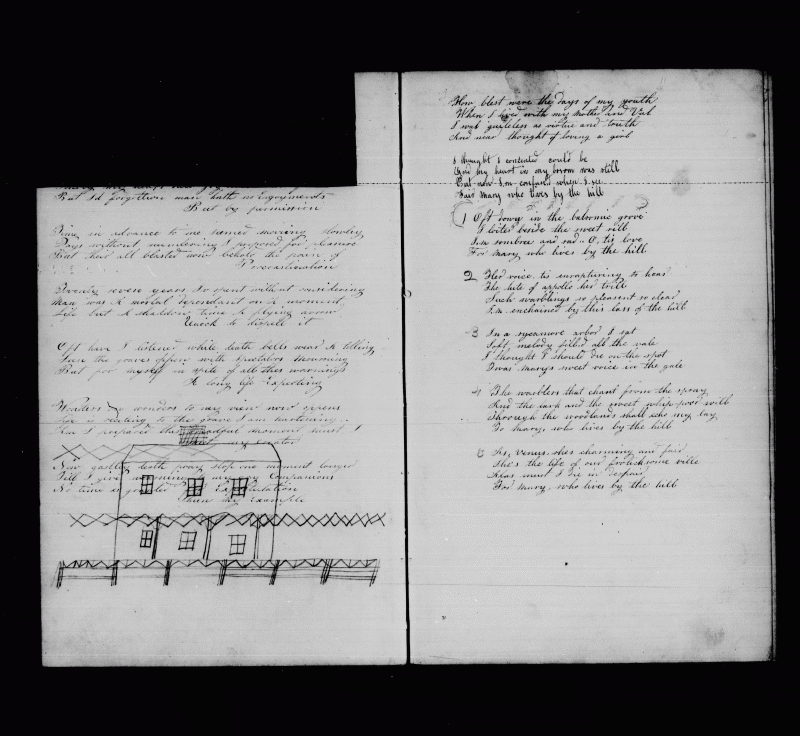 But I'd forgotten man hath no Enjoyments
But by permission
Time in advance to me seemed moving slowley
Days without numbering I proposed for pleasure
But their all blasted now behold the pain of
Procrastination
Twenty seven years Ive spent without considering
Man was A mortal dependant on A moment
Life but A shaddow time A flying arrow
Quick to dispell it
Oft have I listened while death bells wear A tolling
Seen the graves open with Spectators mourning
But for myself in spite of all thes warnings
A long life Expecting
Wonders on wonders to my view now opens
life is to the grave I am hastening
Am I prepared this dreadful moment must I
meet my creator
Now gastley death pray stop one moment longer
Till I give warning to my companions
No time is granted Expostulation
Then my Example
How blest were the days of my youth
When I lived with my Mother and Val
I was guileless as virtue and truth
And near thought of loving a girl
I thought I contented could be
And my heart in my bosom was still
But now I,m confused when I see
Fair Mary who lives by the hill
1 Oft down in the balsomic grove
I loited beside the sweet rill
I,m sombree and sad O, tis love
For Mary who lives by the hill
2 Her voice, tis enrapturing to hear
The lute of appollo her trill
Such warblings so pleasent so clear
I,m enchained by this lass of the hill
3 In a sycamore arbor I sat
Soft, melody filled all the vale
I thought I should die on the spot
Twas marys sweet voice in the gale
4 The warblers that chant from the spray
And the lark and the sweet whip poor will
Through the woodlands shall echo my lay
To Mary, who lives by the hill
5 As, Venus, shes charming and fair
Shes the life of our frolicksome ville
Alas must I die in despair
For Mary, who lives by the hill